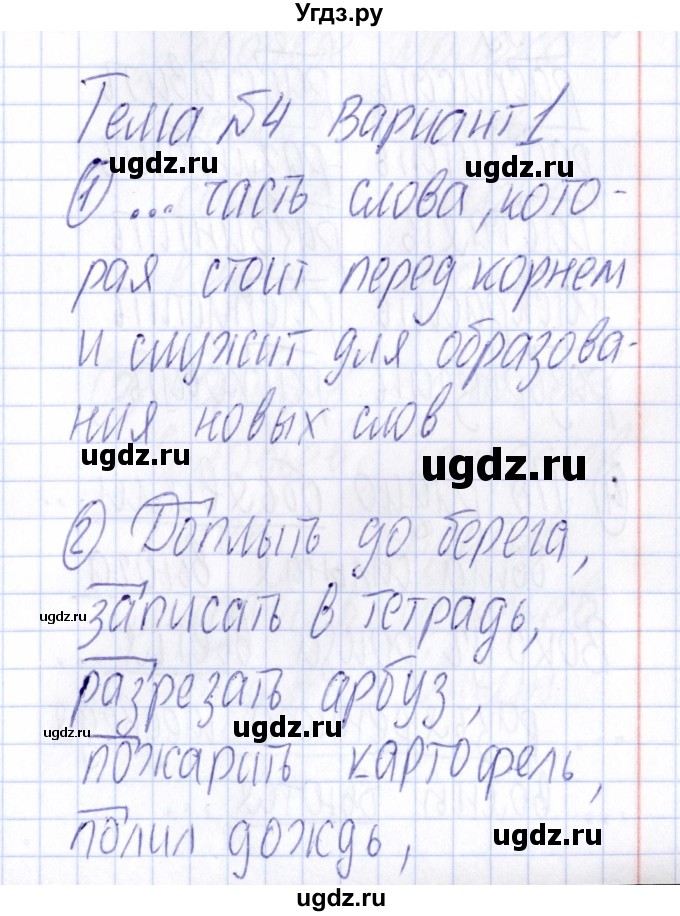 Угдз.ру
Тема №4 Вариант 1
ugdz.ru ugdz.ru
1) ... часть слова, кото-
рая стоит перед корнем
и служит для образова-
ния новых слов
ugdz.ru ugdz.ru .
2) Доплыть до берега,
ugdz.ru
записать в тетрадь,
разрезать арбуз,
ugdz.ru ugdz.ru
пожарить картофель,
полил дождь,
ugdz.ru
ugdz.ru